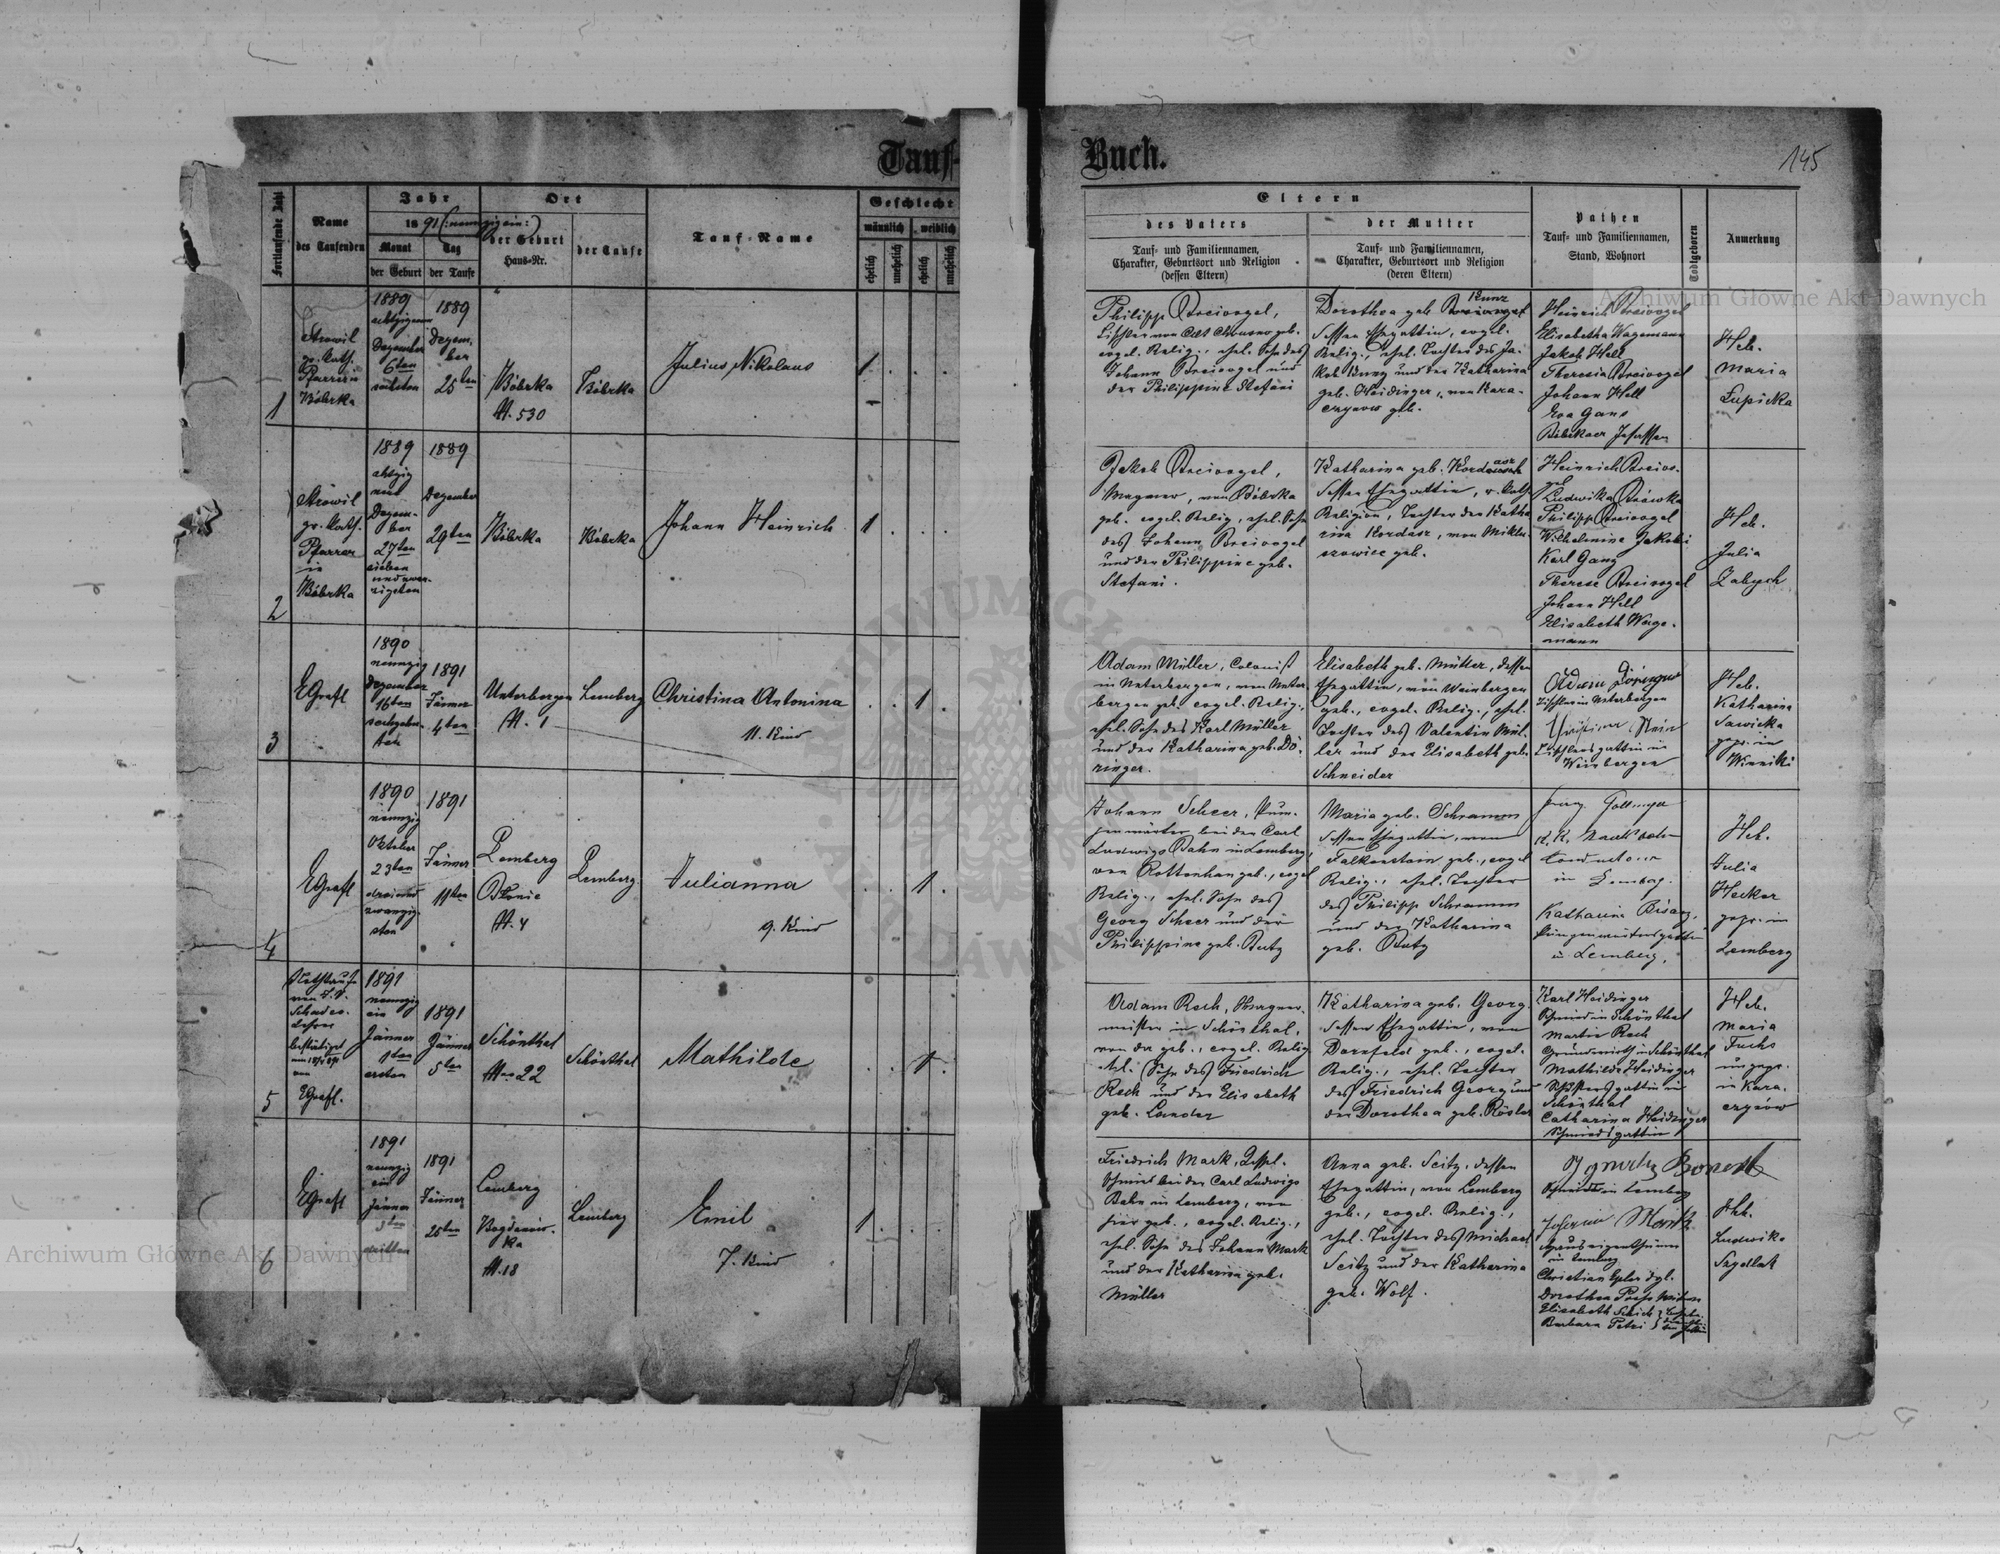 Tauf-
Buch.
145
Fortlaufende Zahl
Name
des Taufenden
Jahr
1891 (:neunzigein:)
Monat
Tag
der Geburt
der Taufe
Ort
der Geburt
Haus-Nr.
der Taufe
Tauf-Name
Geschlecht
männlich
weiblich
ehelich
unehelich
ehelich
unehelich
Eltern
des Vaters
Tauf- und Familiennamen,
Charakter, Geburtsort und Religion
(dessen Eltern)
der Mutter
Tauf- und Familiennamen,
Charakter, Geburtsort und Religion
(deren Eltern)
Pathen
Tauf- und Familiennamen,
Stand, Wohnort
Todtgeboren
Anmerkung
1
gr. kath.
Pfarrer in
Bóbrka
1889
Dezember
6ten
sechsten
1889
Dezem-
ber
25ten
Bóbrka
N. 530
Bóbrka
Julius Nikolaus
1
Philipp Breivogel,
evgel. Relig., ehel. Sohn des
Johann Breivogel und
der Philippine Stefani
Kunz
Dorothea geb.
dessen Ehegattin, evgel.
Relig., ehel. Tochter des Ja-
kob Kunz und der Katharina
geb. Heidinger, von Kara-
czynow geb.
Heinrich Breivogel
Elisabetha Wagemann
Jakob Hell
Theresia Breivogel
Johann Hell
Eva Gans
Heb.
Maria
Lupicka
2
gr. kath.
Pfarrer
in
Bóbrka
1889
achtzig
neun
Dezem-
ber
27ten
sieben
und zwan-
zigsten
1889
Dezember
29ten
Bóbrka
Bóbrka
Johann Heinrich
1
Jakob Breivogel,
Wagner, von Bóbrka
geb. evgel. Relig., ehel. Sohn
des Johann Breivogel
und der Philippine geb.
Stefani.
Katharina geb.
dessen Ehegattin, r. kath.
Religion, Tochter der Katha-
rina Kordasz, von Miklu-
szowice geb.
Heinrich Breivo-
gel
Ludwika
Philipp Breivogel
Wilhelmine Jakobi
Karl Ganz
Therese Breivogel
Johann Hell
Elisabeth Wage-
mann
Heb.
Julia
Zabych
3
EGrafl
1890
neunzig
Dezember
16ten
sechzehn-
ten
1891
Jänner
4ten
Unterbergen
N. 1
Lemberg
Christina Antonina
11. Kind
1
Adam Müller, Colonist
in Unterbergen, von Unter-
bergen geb. evgel. Relig.,
ehel. Sohn des Karl Müller
und der Katharina geb. Dö-
ringer.
Elisabeth geb. Müller, dessen
Ehegattin, von Weinbergen
geb., evgel. Relig., ehel.
Tochter des Valentin Mül-
ler und der Elisabeth geb.
Schneider
Adam Döringer
Tischler in Unterbergen
Tischlersgattin in
Weinbergen
Heb.
Katharina
Sawicka
gepr. in
Winniki
4
EGrafl
1890
neunzig
Oktober
23ten
dreiund
zwanzig-
sten
1891
Jänner
11ten
Lemberg
Błonie
N. 4
Lemberg
Julianna
9. Kind
1
Johann Scheer, Pum-
penwärter bei der Carl
Ludwigs Bahn in Lemberg,
von Rottenhan geb., evgel
Relig., ehel. Sohn des
Georg Scheer und der
Philippine geb. Butz
Maria geb. Schramm
dessen Ehegattin, von
Falkenstein geb., evgel
Relig., ehel. Tochter
des Philipp Schramm
und der Katharina
geb. Butz
Conducteur
in Lemberg.
Katharina Bisanz,
in Lemberg.
Heb.
Julia
Hecker
gepr. in
Lemberg
5
Nothtaufe
Lehrer
bestätigt
von
EGrafl.
1891
neunzig
ein
Jänner
1ten
ersten
1891
Jänner
5ten
Schönthal
Nro 22
Schönthal
Mathilde
1
Adam Rech, Wagner-
meister in Schönthal,
von da geb., evgel. Relig
ehl. Sohn des Friedrich
Rech und der Elisabeth
geb. Lander
Katharina geb. Georg,
dessen Ehegattin, von
Dornfeld geb., evgel.
Relig., ehel. Tochter
des Friedrich Georg und
der Dorothea geb. Rösler
Karl Heidinger
Schmied in Schönthal
Martin Rech
Grundwirth in Schönthal
Mathilde Heidinger
Schönthal
Catharina Heidinger
Schmiedsgattin
Heb.
Maria
Fuchs
ungepr.
in Kara-
czynów
6
EGrafl
1891
neunzig
ein
Jänner
3ten
dritten
1891
Jänner
25ten
Lemberg
Bogdanow-
ka
N. 18
Lemberg
Emil
7. Kind
1
Friedrich Mark, Kessel-
schmied bei der Carl Ludwigs
Bahn in Lemberg, von
hier geb., evgel. Relig.,
ehel. Sohn des Johann Mark
und der Katharina geb.
Müller
Anna geb. Seitz, dessen
Ehegattin, von Lemberg
geb., evgel. Relig.,
ehel. Tochter des Michael
Seitz und der Katharina
geb. Wolf.
Schmied in Lemberg
in Lemberg
Elisabeth Schick
Barbara Petri
Heb.
Ludwika
Szydlak
Archiwum Główne Akt Dawnych
Archiwum Główne Akt Dawnych
ARCHIWUM GŁÓWNE AKT DAWNYCH